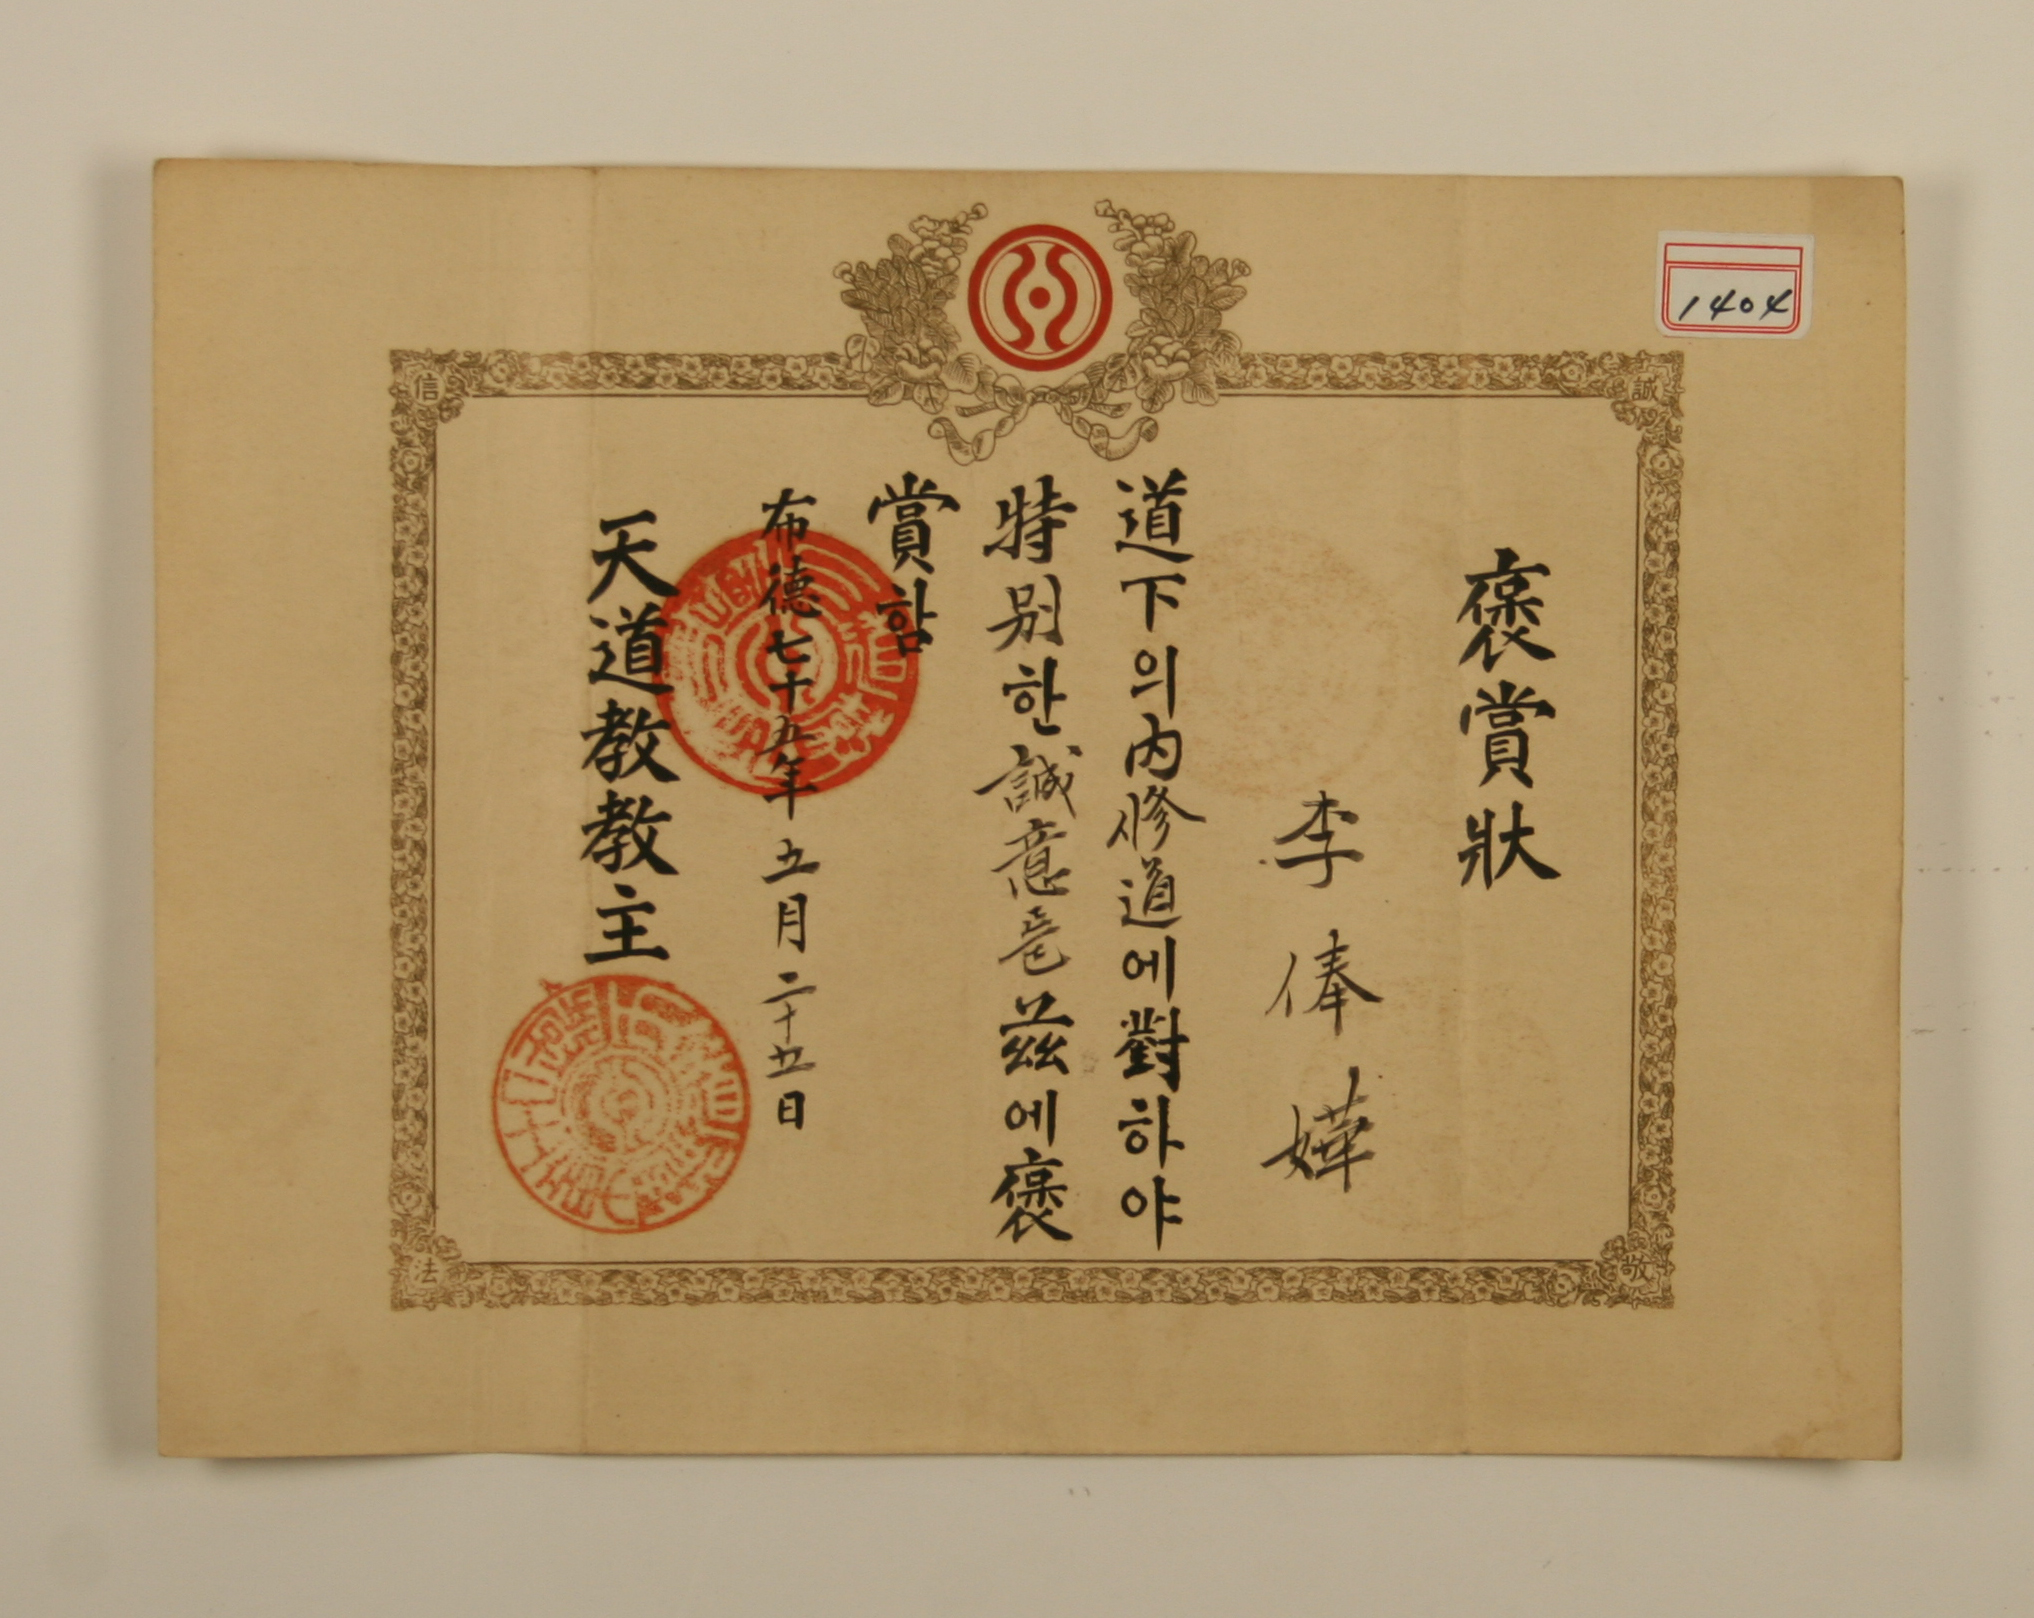 褒賞狀
李俸嬅
道下의內修道에對하야
特別한誠意를玆에褒
賞함
布德七十五年五月二十五日
天道敎敎主
誠
敬
信
法
1404